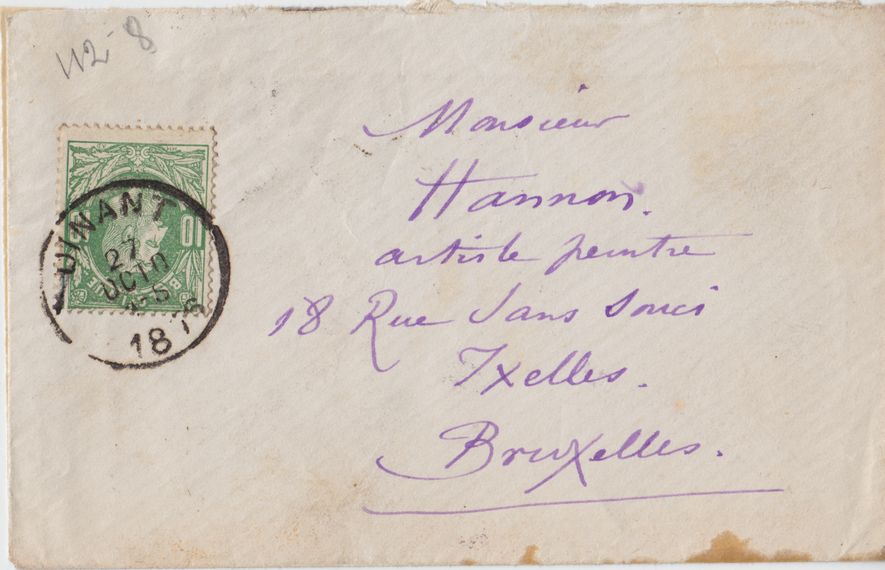 112-8
Monsieur
Hannon.
artiste peintre
18 Rue Sans Souci
Ixelles.
Bruxelles.
DINANT
27
OCTO
1876
10